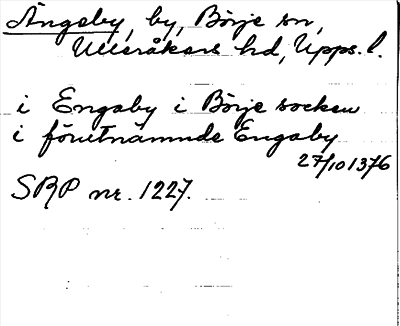 Ängeby, by, Börje sn,
Ulleråkers hd, Upps. l.
i Engaby i Börje socken
i förutnämnde Engaby
27/10 1376
SRP nr. 1227.